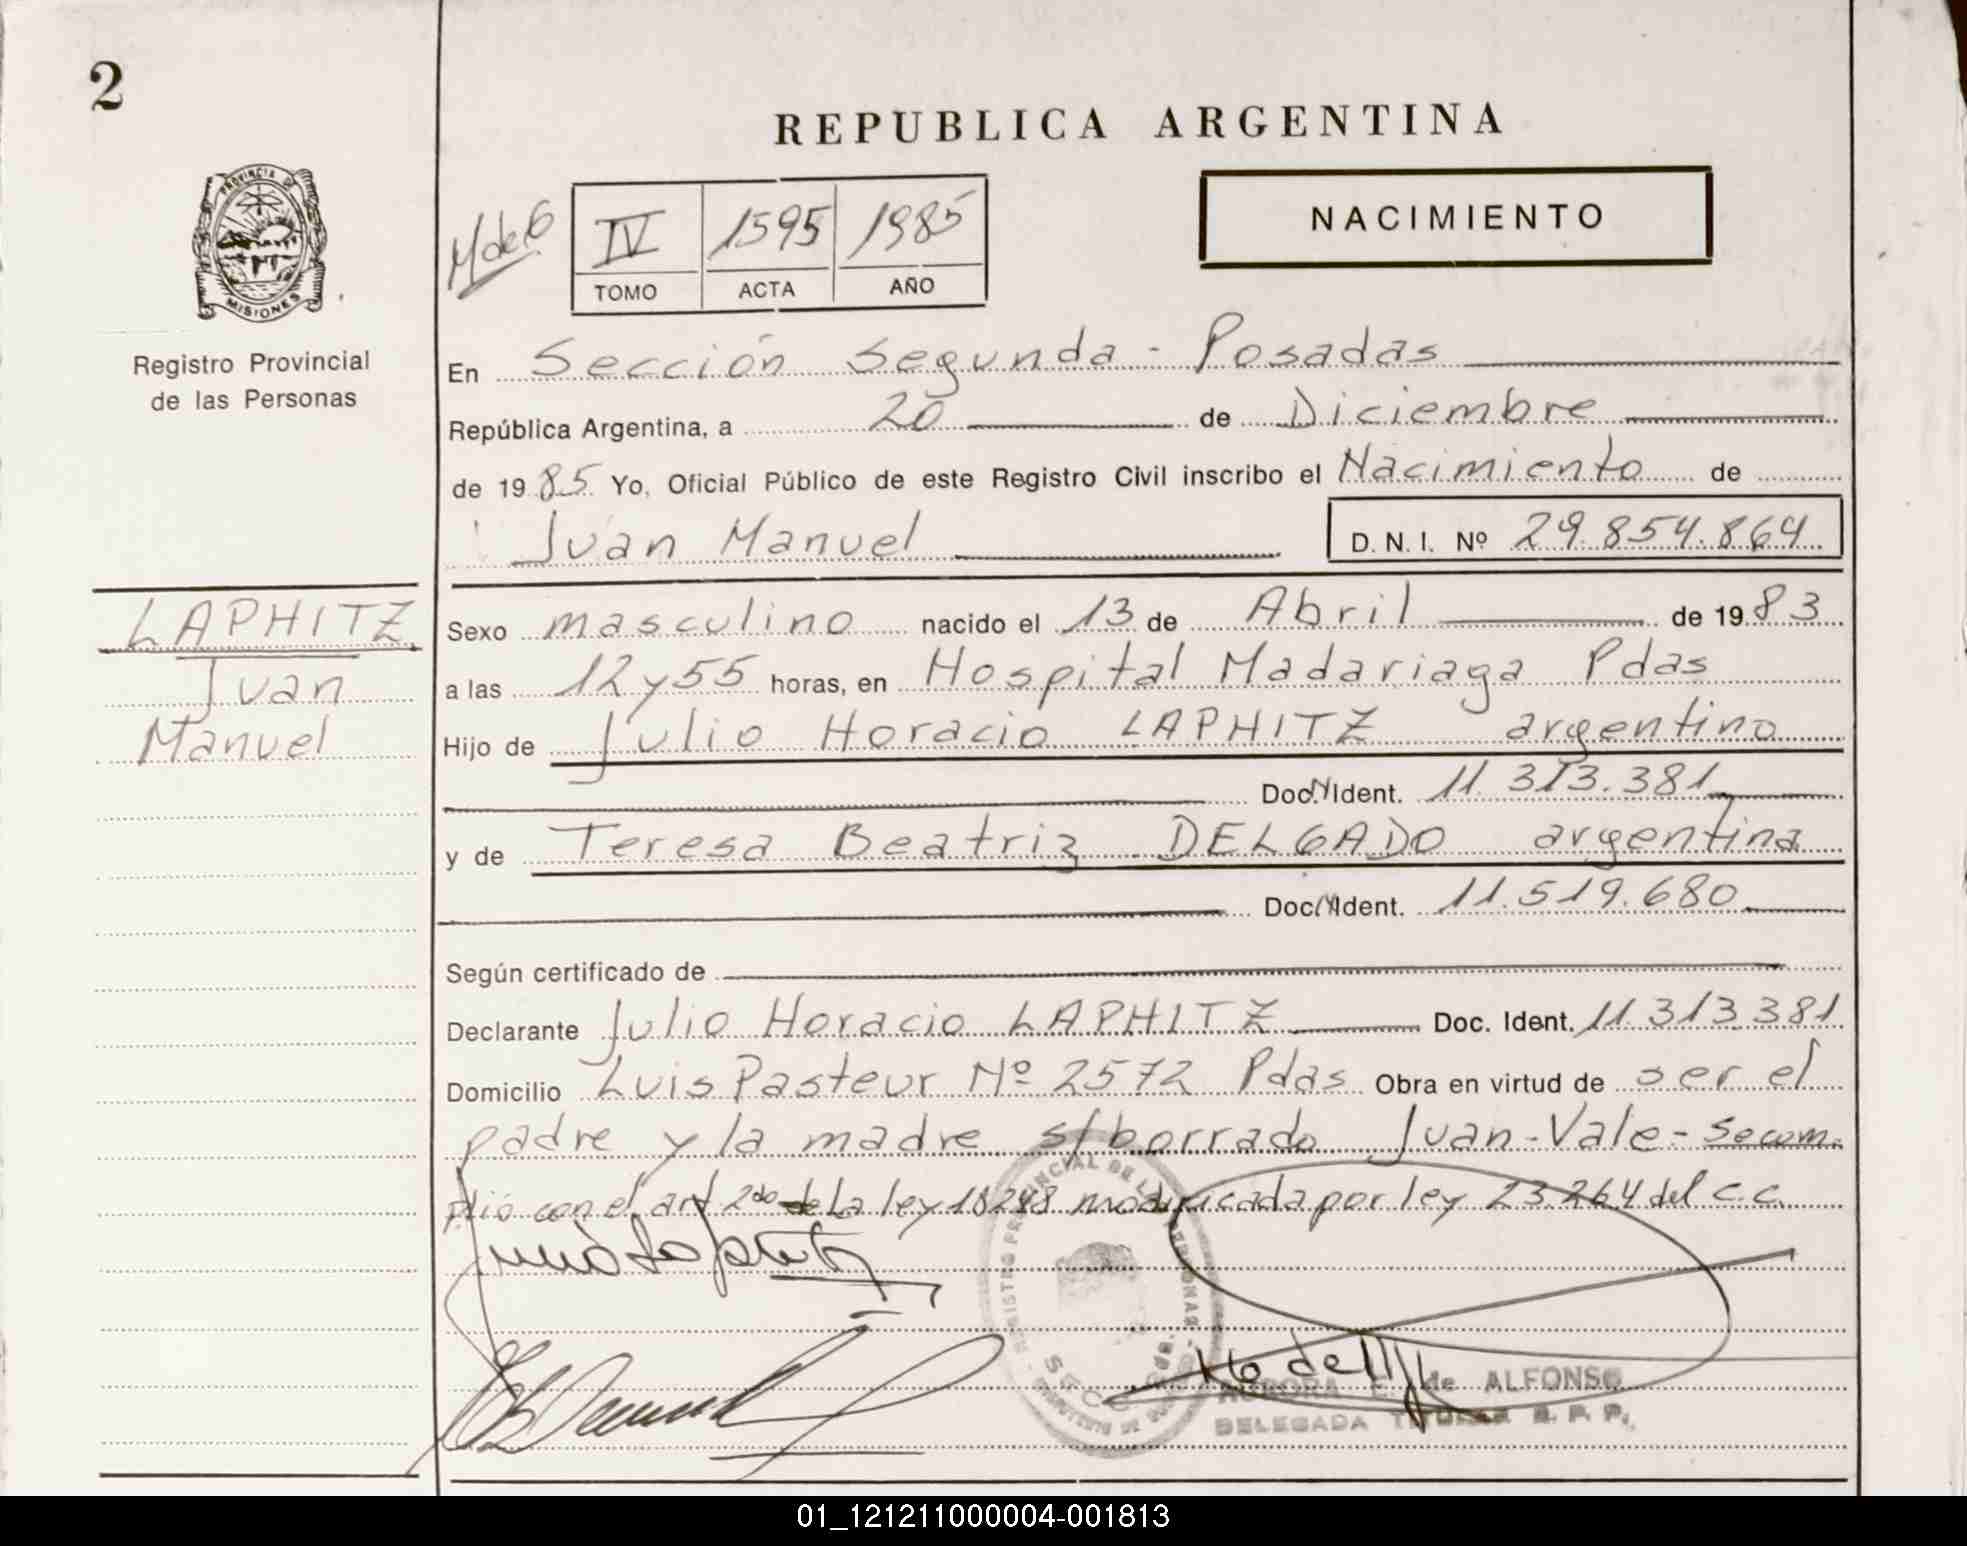 2
REPUBLICA ARGENTINA
PROVINCIA DE
MISIONES
Registro Provincial
de las Personas
M de G
IV 1595 1985
TOMO ACTA AÑO
NACIMIENTO
En Sección Segunda - Posadas
República Argentina, a 20 de Diciembre
de 1985 Yo, Oficial Público de este Registro Civil inscribo el Nacimiento de
Juan Manuel D. N. I. Nº 29.854.864
LAPHITZ
Juan
Manuel
Sexo masculino nacido el 13 de Abril de 1983
a las 12 y 55 horas, en Hospital Madariaga Pdas
Hijo de Julio Horacio LAPHITZ argentino
Doc. N Ident. 11.313.381
y de Teresa Beatriz DELGADO argentina
Doc. N Ident. 11.519.680
Según certificado de
Declarante Julio Horacio LAPHITZ Doc. Ident. 11.313.381
Domicilio Luis Pasteur Nº 2572 Pdas Obra en virtud de ser el
padre y la madre s/borrado Juan-Vale-Se cum-
plió con el art 2do de La ley 18248 modificada por ley 23.264 del c.c.
REGISTRO PROVINCIAL DE LAS PERSONAS
AURORA E. de ALFONSO
DELEGADA TITULAR R. P. P.
01_121211000004-001813